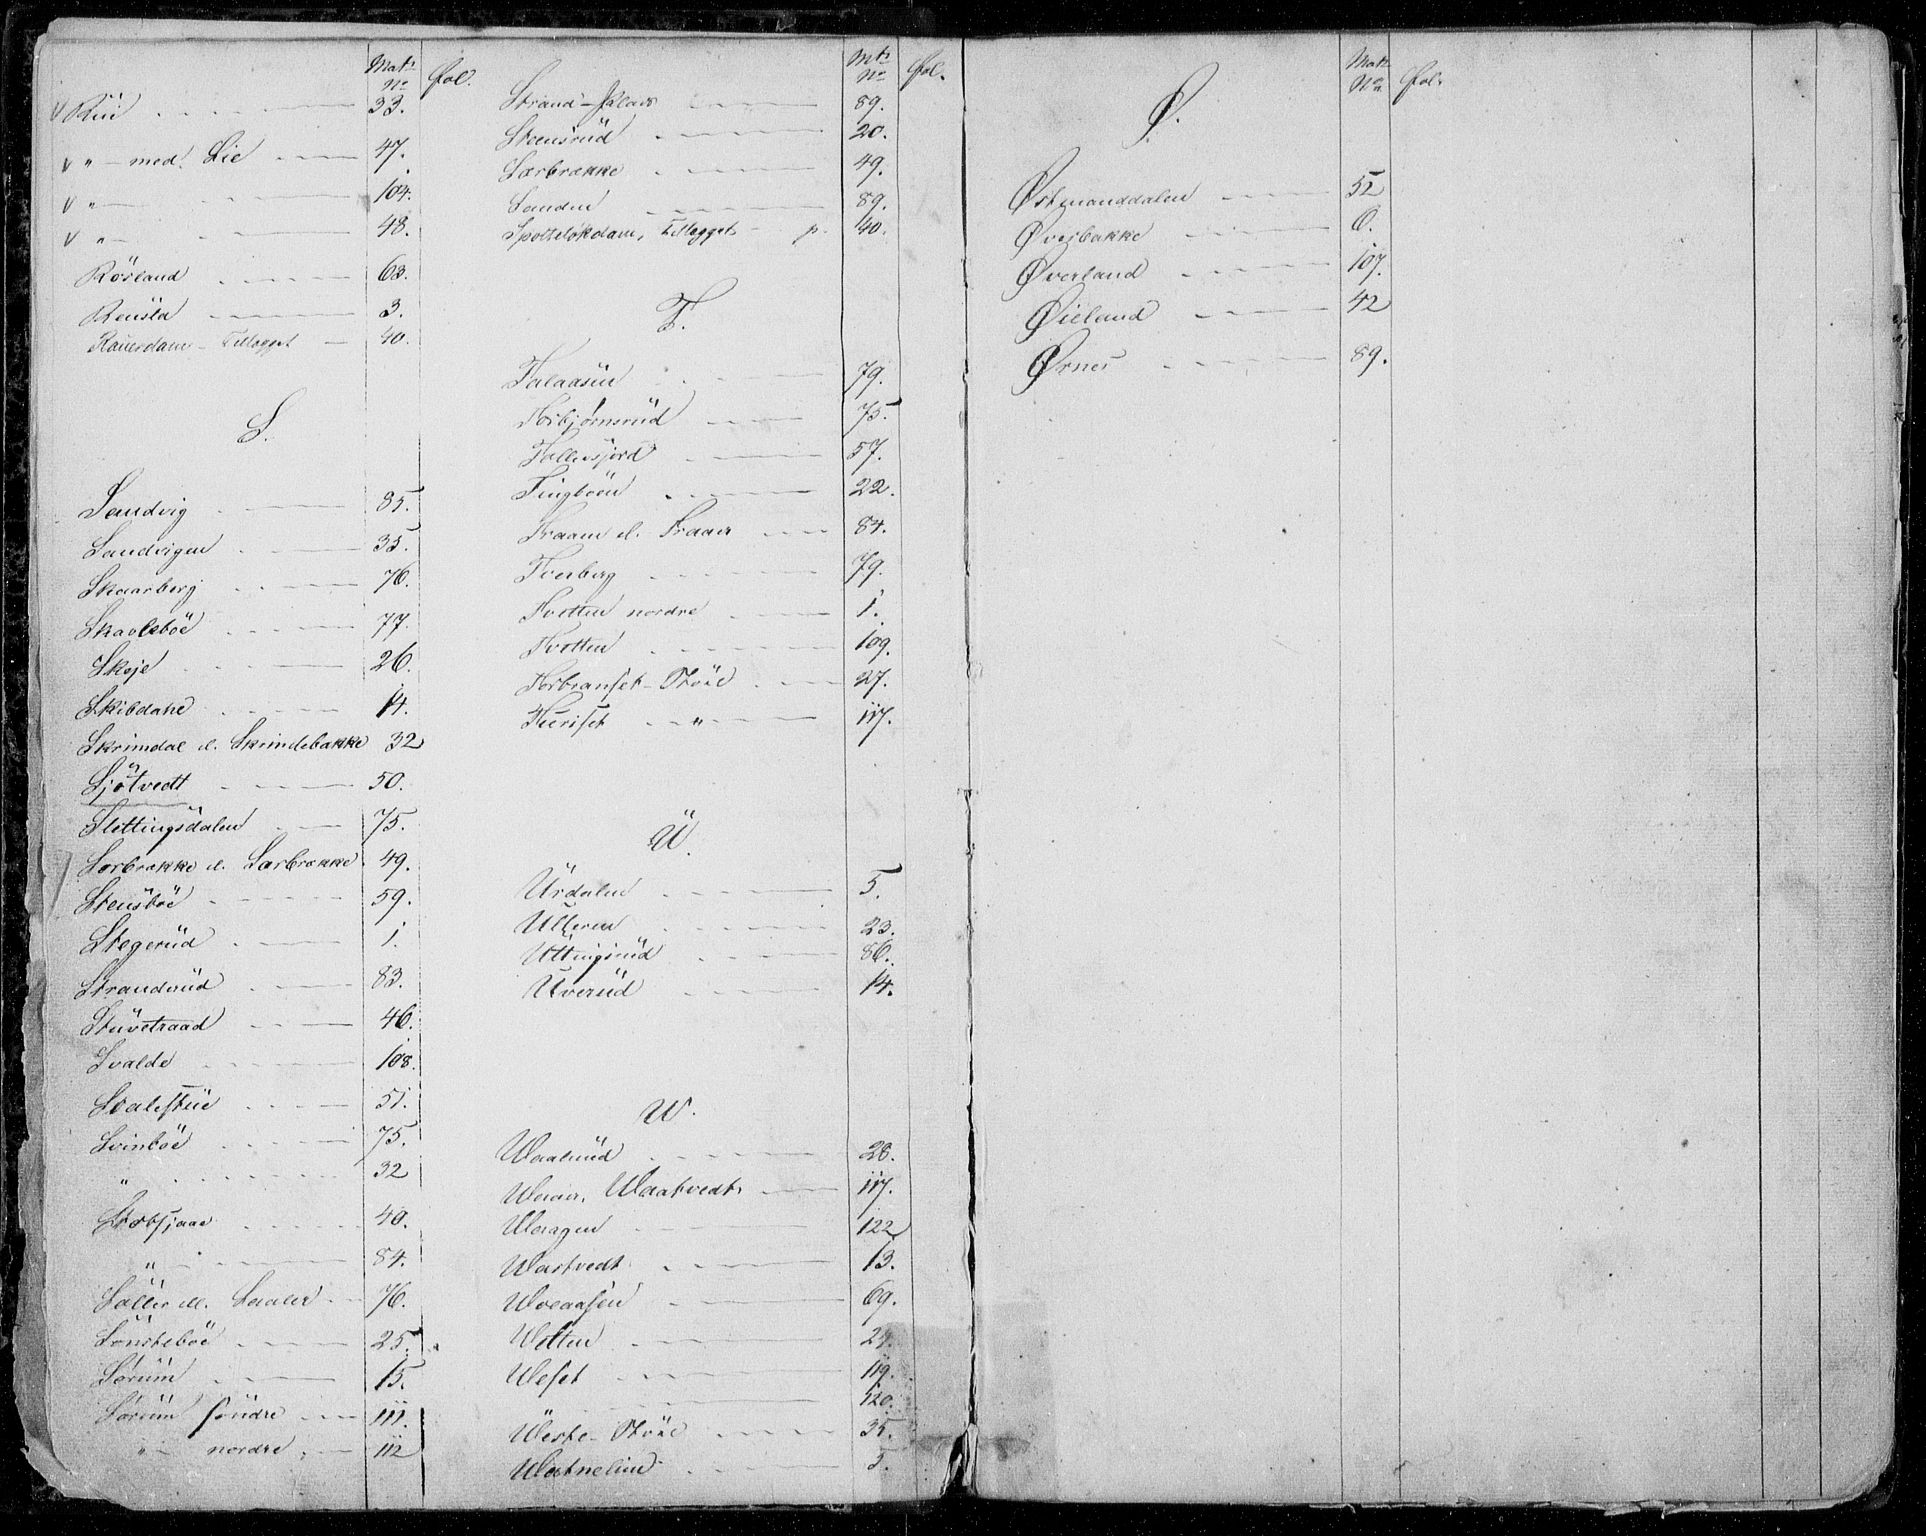 Matr No Fol.
v Rui 33.
v " - med Lie 47.
v " 104.
v " 48.
Rösland 63.
Rensla 3.
Rauerdam - Tillagget 40.
S.
Sandvig 85.
Sandvigen 35.
Skaarberg 76.
Skavleböe 77.
Skeje 26.
Skibdahe 14.
Skrimdal el. Skrindebakke 32
Sjötvedt 50.
Slettingsdalen 75.
Sorbrække el. Særbrække 49.
Stensböe 59.
Stegerüd 1.
Strandrüd 83.
Stüvetraad 46.
Svalde 108.
Svalestüe 51.
Svinböe 75.
" 32
40.
" 84.
Söller el. Saaler 76.
Sönsteböe 25.
Sörüm 15.
Sörüm söndre 111.
" nordre 112
Mtr No Fol.
Strand-Klavs 89.
Steensrüd 20.
Særbrække 49.
Sanden 89.
Spottelökdam, Tillagget p. 40.
T.
Talaasen 79.
Torbjørnsrüd 75.
Tollevsjord 57.
Tingböen 22.
Traaen el. Traaer 84.
Tverberg 79.
Tvetten nordre 1.
Tvetten 109.
Torbranset - Thvüe 27.
Turiset " 117.
Ü.
Ürdalen 5.
Ulleren 23.
Uttingsrüd 86.
Uverüd 14.
W.
Waalrüd 28.
Waaer, Waatvedt 117.
Waagen 122
Wastvedt 13.
Woeaasen 69.
Wetten 29.
Weset 119.
120.
Weste - Thvüe 35.
Westnelien 5.
Matr No. Fol.
Ø.
Østmanddalen 52
Øverbakke 6.
Øverland 107.
Øieland 42
Ørnes 89.